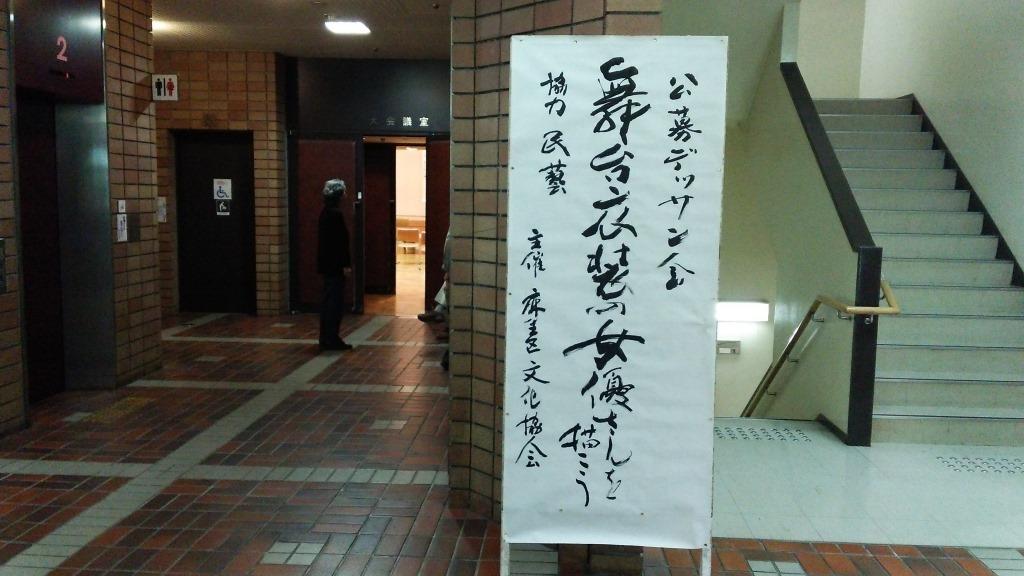 公募デッサン会
舞台衣裳の女優さんを
描こう
協力 民藝
主催 麻生区文化協会
大会議室
2